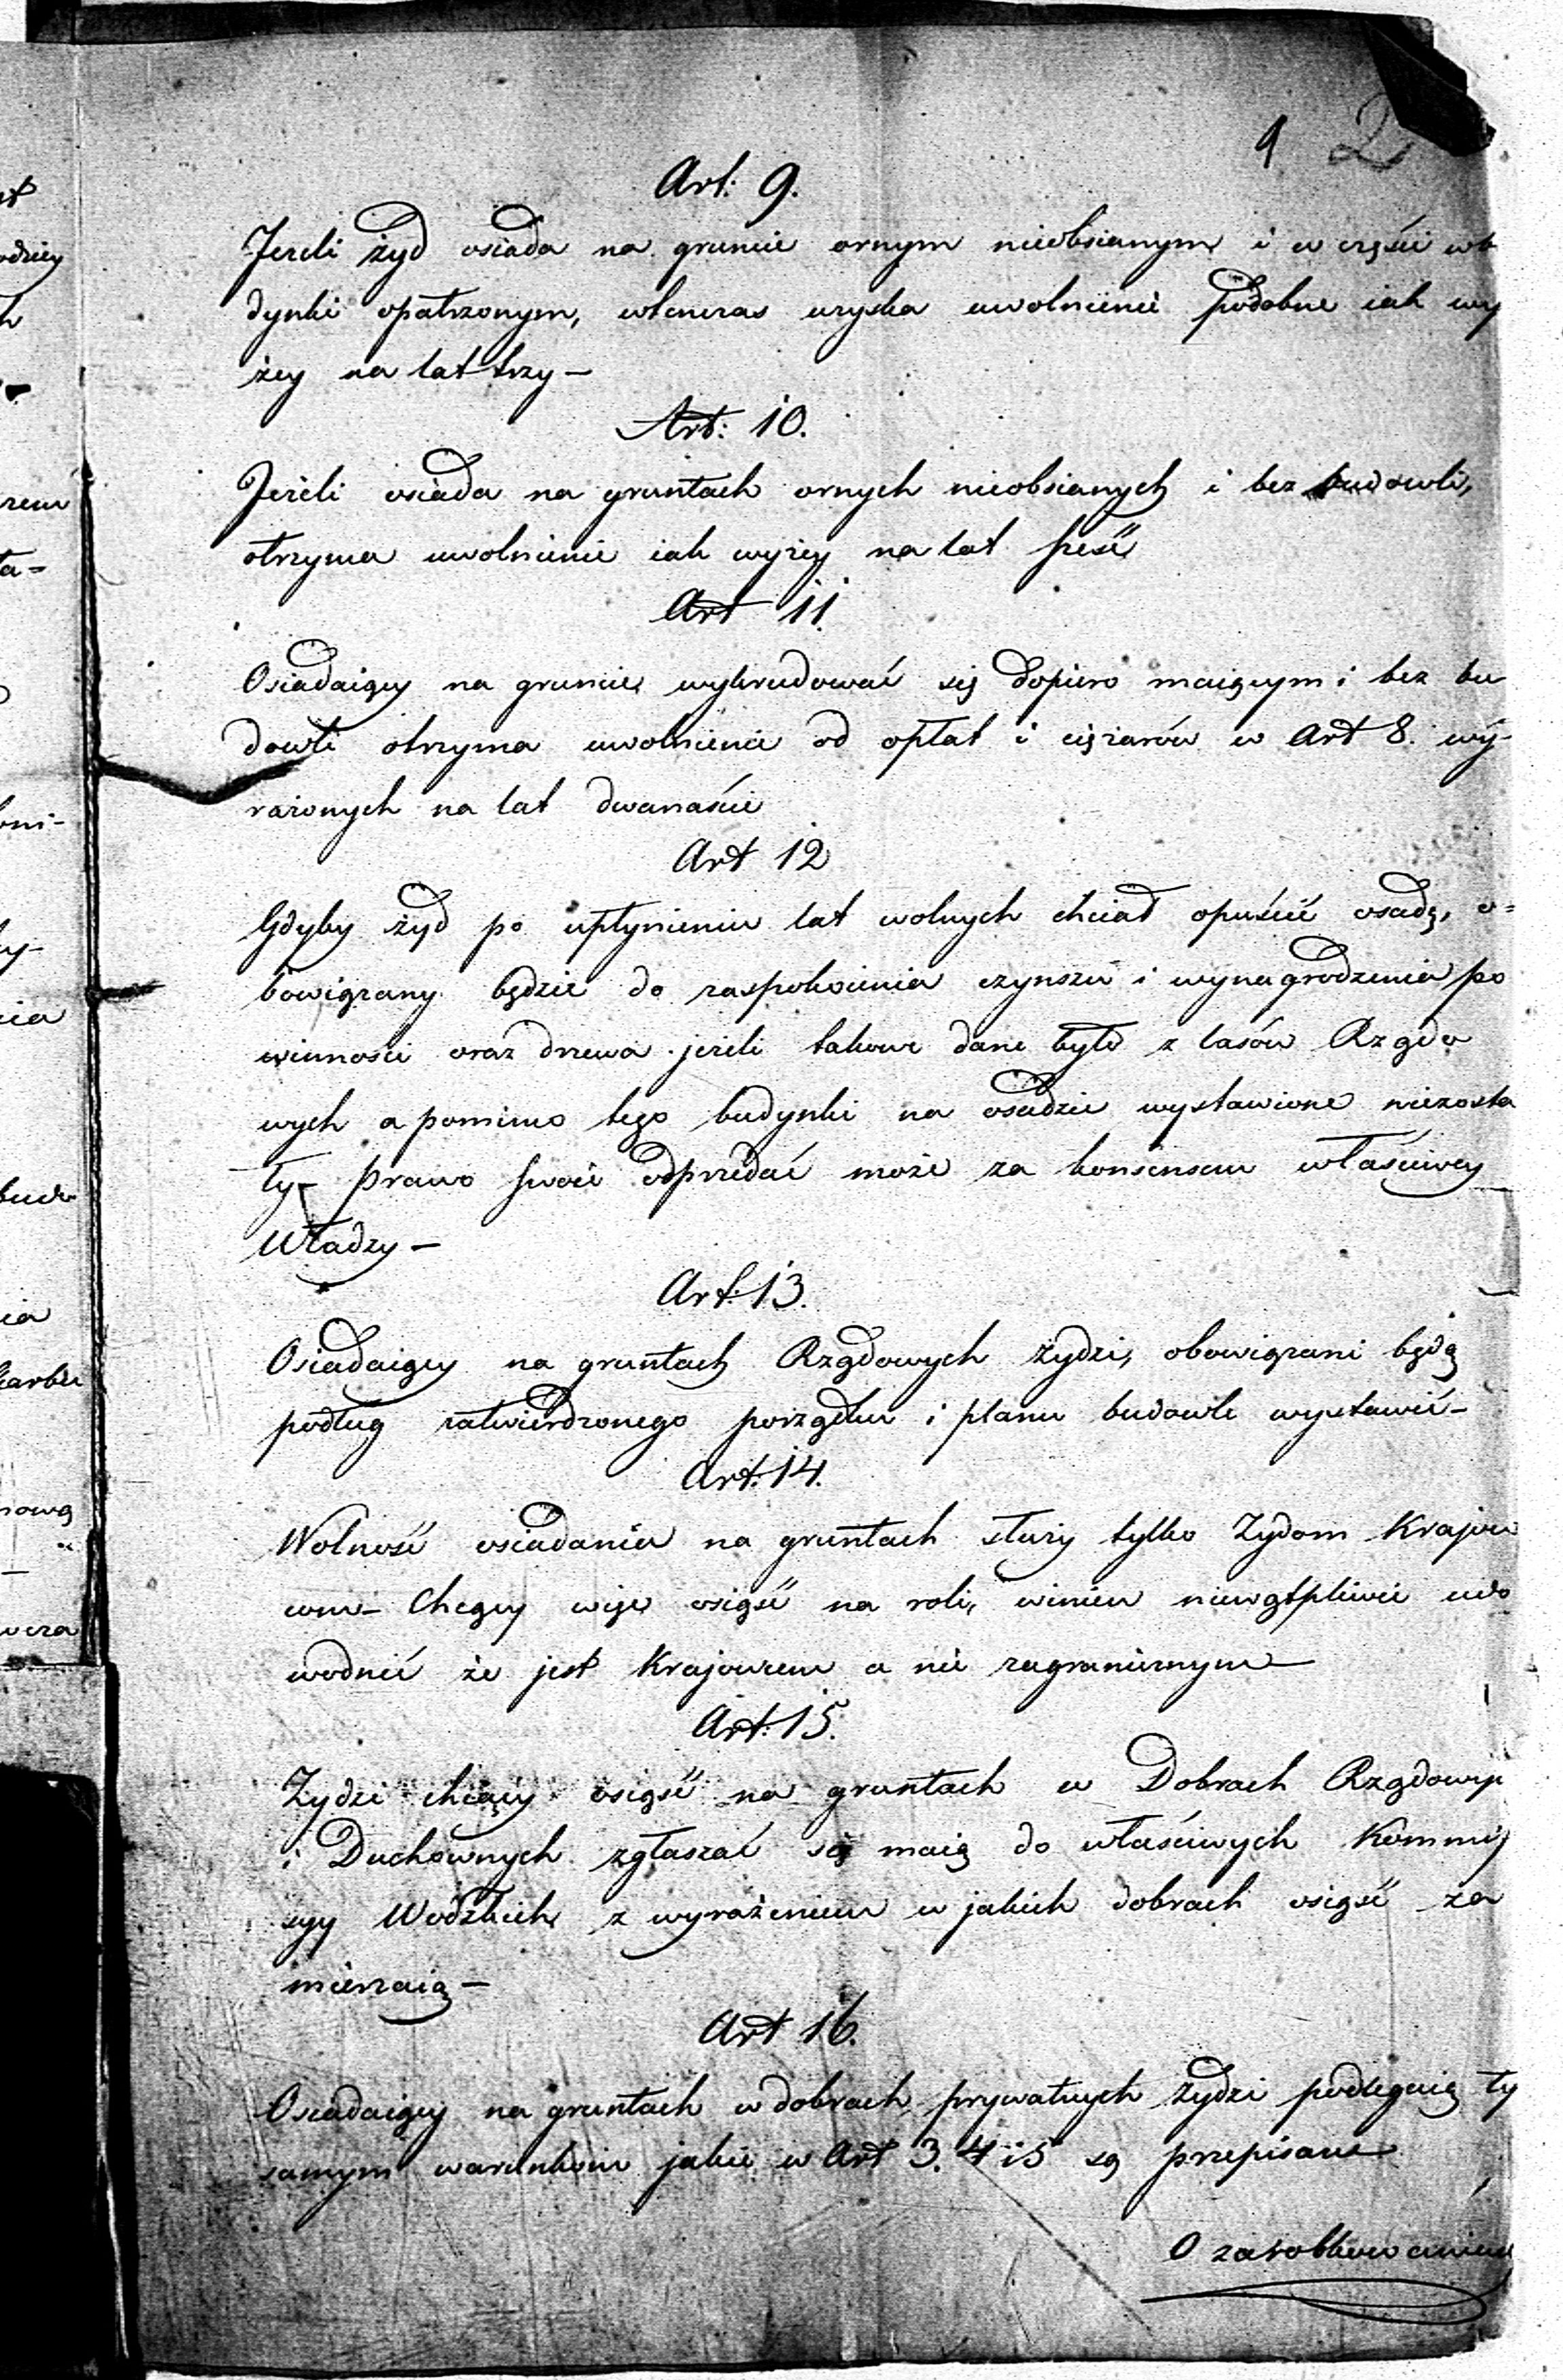 9 2
Art: 9.
Jezeli żyd osiada na gruncie ornym nieobsianym i w części w b
dynki opatrzonym, wtenczas uzyska uwolnienie podobne iak wy
żey na lat trzy —
Art: 10.
Jeżeli osiada na gruntach ornych nieobsianych i bez budowli,
otrzyma uwolnienie iak wyżey na lat sześć
Art 11.
Osiadaiący na gruncie wykrudować się dopiero maiącym i bez bu
dowli otrzyma uwolnienie od opłat i ciężarów w Art 8. wy-
rażonych na lat dwanaście
Art 12
Gdyby żyd po upłynieniu lat wolnych chciał opuścić osadę, o=
bowiązany będzie do zaspokoienia czynszu i wynagrodzenia po
winności oraz drzewa jeżeli takowe dane było z lasów Rządo
wych a pomimo tego budynki na osadzie wystawione niezosta
ły — prawo swoie odprzedać może za konsensem właściwey
Władzy —
Art: 13.
Osiadaiący na gruntach Rządowych żydzi, obowiązani będą
podług zatwierdzonego porządku i planu budowle wystawić —
Art: 14.
Wolność osiadania na gruntach służy tylko Żydom Krajow
com — Chcący więc osiąść na roli, winien niewątpliwie udo
wodnić że jest Krajowcem a nie zagranicznym —
Art: 15.
Żydzi chcący osiąść na gruntach w Dobrach Rządowych
i Duchownych zgłaszać się maią do właściwych Kommis
syy Wodzkich z wyrażeniem w jakich dobrach osiąść za
mierzaią —
Art 16.
Osiadaiący na gruntach w dobrach prywatnych żydzi podlegaią ty
samym warunkom jakie w Art 3. 4 i 5 są przepisane
O zarobkowaniu